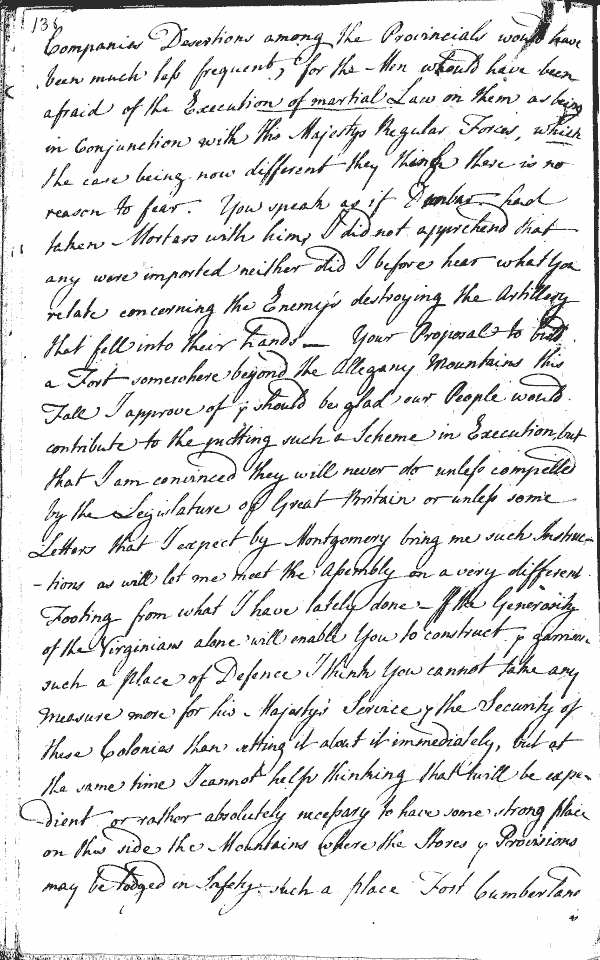 138
Companies Desertions among the Provincials would have
been much less frequent, for the Men would have been
afraid of the Execution of martial Law on them as being
in Conjunction with his Majestys Regular Forces, which
the case being now different they think there is no
reason to fear. You speak as if Dunbar had
taken Mortars with him, I did not apprehend that
any were imported neither did I before hear what You
relate concerning the Enemy's destroying the Artillery
that fell into their hands — Your Proposal to build
a Fort somewhere beyond the Allegany Mountains this
Fall I approve of & should be glad our People would
contribute to the putting such a Scheme in Execution, but
that I am convinced they will never do unless compelled
by the Legislature of Great Britain or unless some
Letters that I expect by Montgomery bring me such Instruc-
-tions as will let me meet the Assembly on a very different
Footing from what I have lately done — If the Generosity
of the Virginians alone will enable You to construct & garrison
such a place of Defence I think You cannot take any
measure more for his Majesty's Service & the Security of
these Colonies than setting it about it immediately, but at
the same time I cannot help thinking that will be expe-
dient or rather absolutely necessary to have some strong place
on this side the Mountains where the Stores & Provisions
may be lodged in Safety. such a place Fort Cumberland